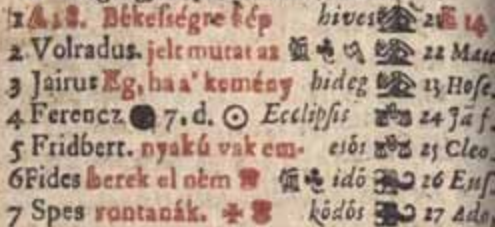 1 A. 18. Békeſségre kép hives 21 E 14
2 Volradus. jelt mutat az 22
3 Jairus Eg, ha a' kemény hideg 23 Hoſe.
4 Ferencz 7. d. ☉ Ecclipſis 24 Ja ſ.
5 Fridbert. nyakú vak em- eſős 25 Cleo
6 Fides berek el nem idő 26
7 Spes rontanák. ködös 27 Ado